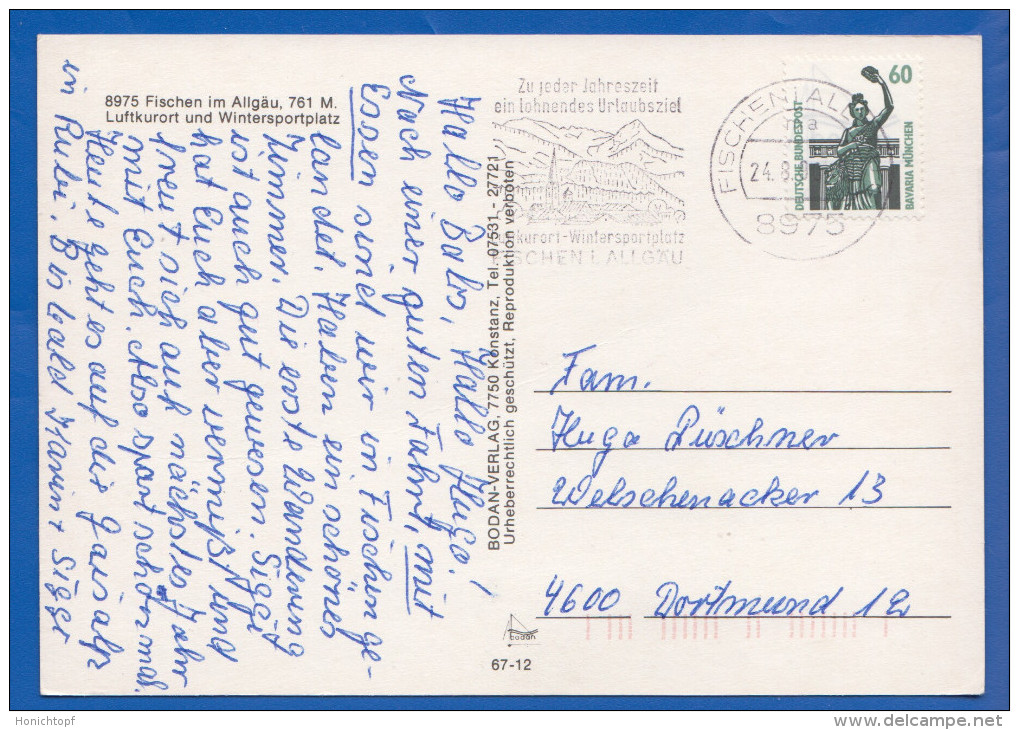 8975 Fischen im Allgäu, 761 M.
Luftkurort und Wintersportplatz
Hallo Babs, Hallo Hugo!
Nach einer guten Fahrt, mit
Essen sind wir in Fischen ge-
landet. Haben ein schönes
Zimmer. Die erste Wanderung
ist auch gut gewesen. Siggi
hat Euch aber vermißt und
freut sich auf nächstes Jahr
mit Euch. Also spart schon mal.
Heute geht es auf die Gaisalp
in Rubi. Bis bald
BODAN-VERLAG, 7750 Konstanz, Tel. 07531 - 27721
Urheberrechtlich geschützt, Reproduktion verboten
bodan
67-12
Zu jeder Jahreszeit
ein lohnendes Urlaubsziel
Luftkurort-Wintersportplatz
FISCHEN I. ALLGÄU
FISCHEN I ALLG
24.8
8975
60
DEUTSCHE BUNDESPOST
BAVARIA MÜNCHEN
Fam.
Hugo Püschner
Welschenacker 13
4600 Dortmund 12
Honichtopf
www.delcampe.net